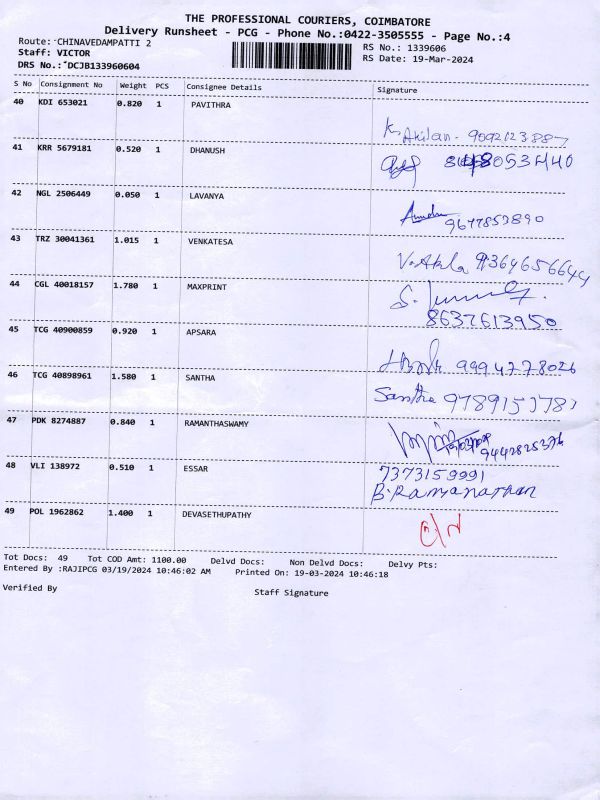 THE PROFESSIONAL COURIERS, COIMBATORE
Delivery Runsheet - PCG - Phone No.:0422-3505555 - Page No.:4
Route: CHINAVEDAMPATTI 2
RS No.: 1339606
Staff: VICTOR
RS Date: 19-Mar-2024
DRS No.: DCJB133960604
S No Consignment No Weight PCS Consignee Details Signature
40 KDI 653021 0.820 1 PAVITHRA
K. Akilan - 9092123887
41 KRR 5679181 0.520 1 DHANUSH
42 NGL 2506449 0.050 1 LAVANYA
9677853890
43 TRZ 30041361 1.015 1 VENKATESA
V. Akla 9364656644
44 CGL 40018157 1.780 1 MAXPRINT
8637613950
45 TCG 40900859 0.920 1 APSARA
9994778026
46 TCG 40898961 1.580 1 SANTHA
Santha 9789153781
47 PDK 8274887 0.840 1 RAMANTHASWAMY
9442825376
48 VLI 138972 0.510 1 ESSAR
7373159991
B. Ramanathan
49 POL 1962862 1.400 1 DEVASETHUPATHY
Tot Docs: 49 Tot COD Amt: 1100.00 Delvd Docs: Non Delvd Docs: Delvy Pts:
Entered By :RAJIPCG 03/19/2024 10:46:02 AM Printed On: 19-03-2024 10:46:18
Verified By Staff Signature